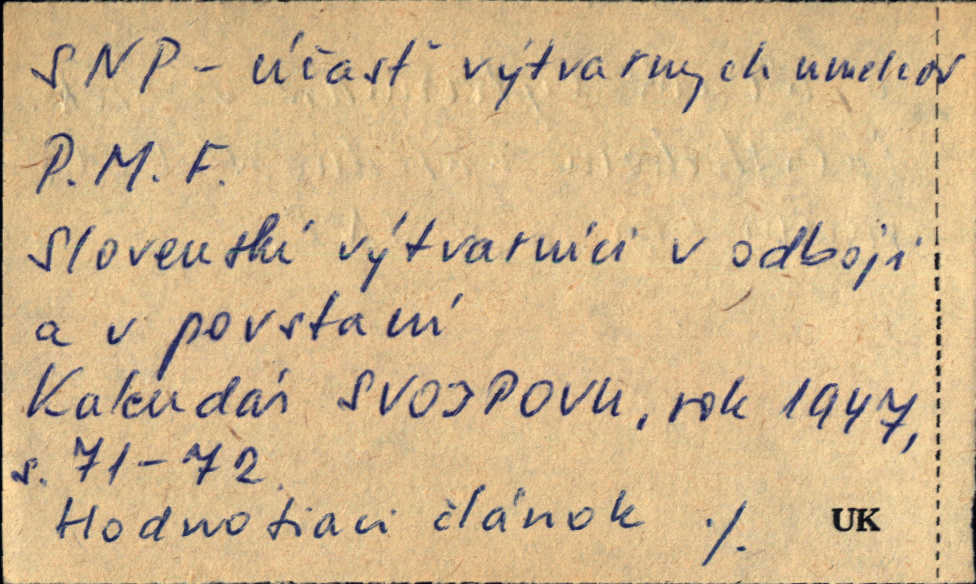 SNP - účasť výtvarných umelcov
P.M.F.
Slovenskí výtvarníci v odboji
a v povstaní
Kalendár SVOJPOVU, rok 1947,
s. 71-72.
Hodnotiaci článok ./.
UK